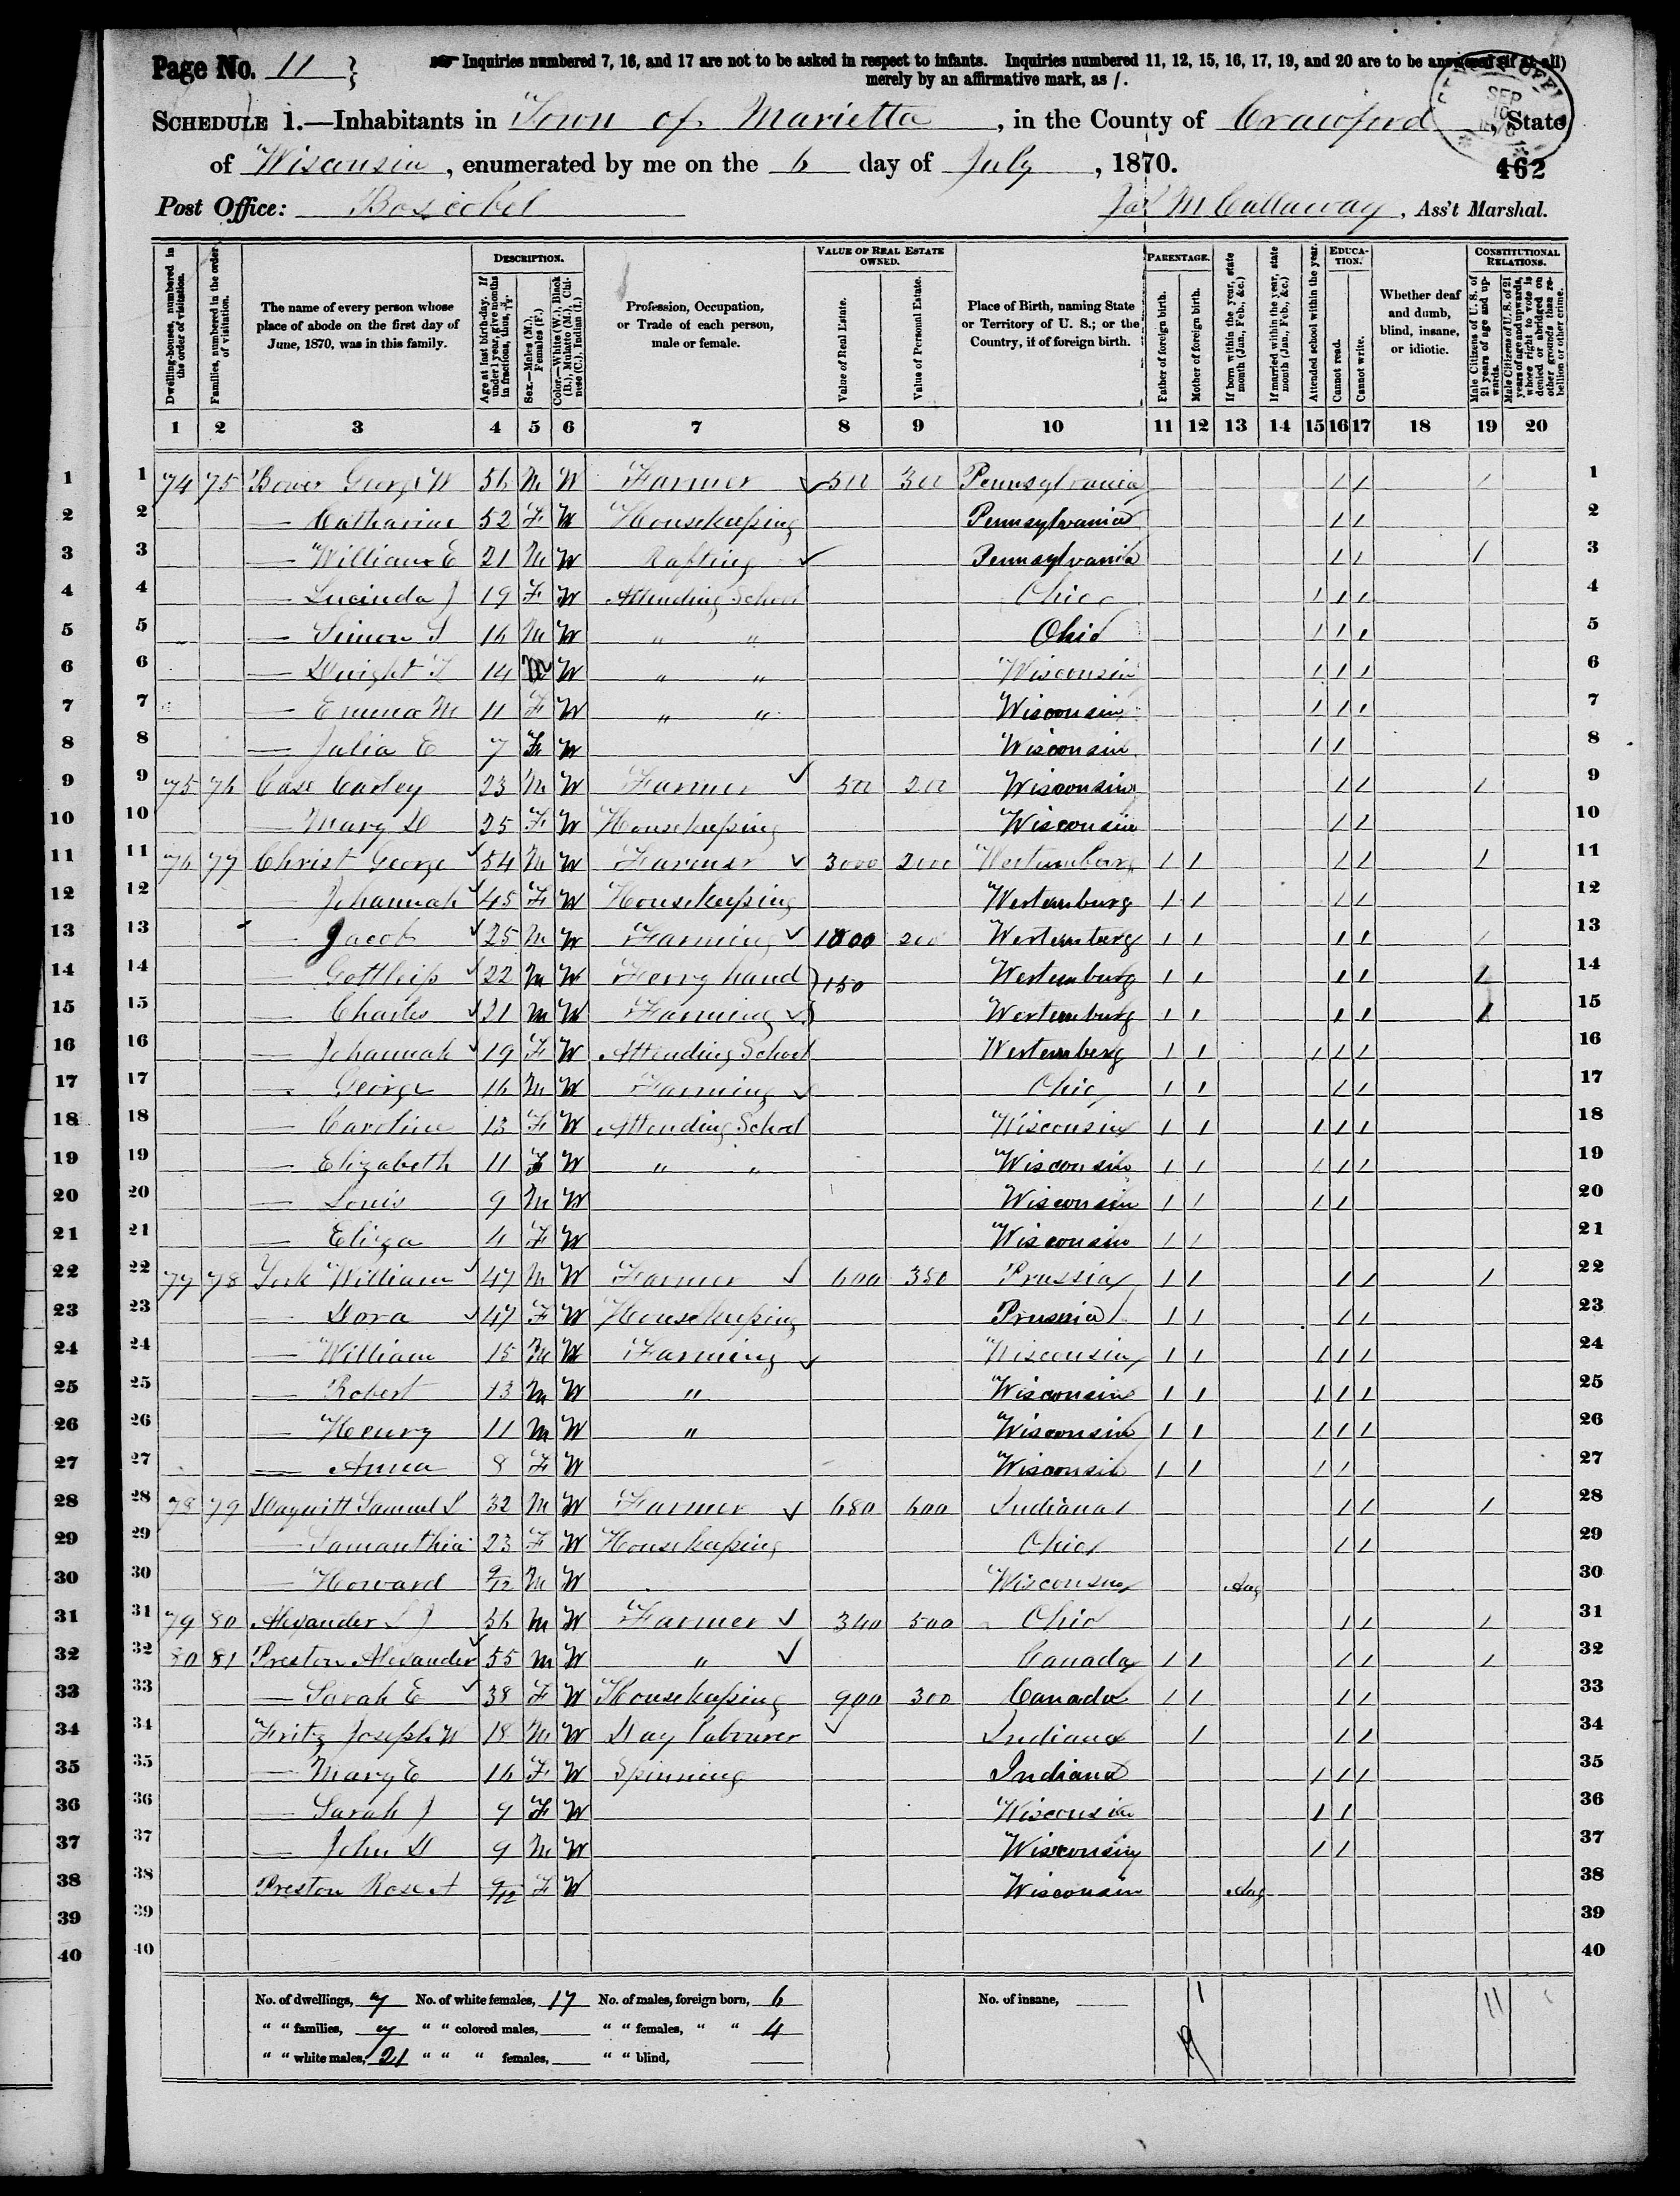 Page No. 11
Inquiries numbered 7, 16, and 17 are not to be asked in respect to infants. Inquiries numbered 11, 12, 15, 16, 17, 19, and 20 are to be answered (if at all)
merely by an affirmative mark, as /.
SCHEDULE 1.—Inhabitants in Town of Marietta, in the County of Crawford, State
of Wisconsin, enumerated by me on the 6 day of July, 1870.
462
Post Office: Boscobel Jas M Callaway, Ass't Marshal.
Dwelling-houses, numbered in the order of visitation.
Families, numbered in the order of visitation.
The name of every person whose place of abode on the first day of June, 1870, was in this family.
DESCRIPTION.
Age at last birth-day. If under 1 year, give months in fractions, thus, 3/12.
Sex.—Males (M.), Females (F.)
Color.—White (W.), Black (B.), Mulatto (M.), Chinese (C.), Indian (I.)
Profession, Occupation, or Trade of each person, male or female.
VALUE OF REAL ESTATE OWNED.
Value of Real Estate.
Value of Personal Estate.
Place of Birth, naming State or Territory of U. S.; or the Country, if of foreign birth.
PARENTAGE.
Father of foreign birth.
Mother of foreign birth.
If born within the year, state month (Jan., Feb., &c.)
If married within the year, state month (Jan., Feb., &c.)
Attended school within the year.
EDUCATION.
Cannot read.
Cannot write.
Whether deaf and dumb, blind, insane, or idiotic.
CONSTITUTIONAL RELATIONS.
Male Citizens of U. S. of 21 years of age and upwards.
Male Citizens of U. S. of 21 years of age and upwards, whose right to vote is denied or abridged on other grounds than rebellion or other crime.
1 2 3 4 5 6 7 8 9 10 11 12 13 14 15 16 17 18 19 20
1 74 75 Bower George W 56 M W Farmer 500 300 Pennsylvania / / / 1
2 — Catharine 52 F W Housekeeping Pennsylvania / / 2
3 — William E 21 M W Rafting Pennsylvania / / / 3
4 — Lucinda J 19 F W Attending School Ohio / / / 4
5 — Simon S 16 M W " " Ohio / / / 5
6 — Dwight T 14 M W " " Wisconsin / / / 6
7 — Emma M 11 F W " " Wisconsin / / / 7
8 — Julia E 7 F W Wisconsin / / 8
9 75 76 Case Carley 23 M W Farmer 500 200 Wisconsin / / / 9
10 — Mary D 25 F W Housekeeping Wisconsin / / 10
11 76 77 Christ George 54 M W Farmer 3000 2000 Wertemburg / / / / / 11
12 — Johannah 45 F W Housekeeping Wertemburg / / / / 12
13 — Jacob 25 M W Farming 1000 200 Wertemberg / / / / / 13
14 — Gottleip 22 M W Ferry hand 150 Wertemburg / / / / / 14
15 — Charles 21 M W Farming Wertemburg / / / / / 15
16 — Johannah 19 F W Attending School Wertemberg / / / / / 16
17 — George 16 M W Farming Ohio / / / / 17
18 — Caroline 13 F W Attending School Wisconsin / / / / / 18
19 — Elizabeth 11 F W " " Wisconsin / / / / / 19
20 — Louis 9 M W Wisconsin / / / / 20
21 — Eliza 4 F W Wisconsin / / 21
22 77 78 William 47 M W Farmer 600 350 Prussia / / / / / 22
23 — Dora 47 F W Housekeeping Prussia / / / / 23
24 — William 15 M W Farming Wisconsin / / / / / 24
25 — Robert 13 M W " Wisconsin / / / / / 25
26 — Henry 11 M W " Wisconsin / / / / / 26
27 — Anna 8 F W Wisconsin / / / / 27
28 78 79 Samuel S 32 M W Farmer 680 600 Indiana / / / 28
29 — Samanthia 23 F W Housekeeping Ohio / / 29
30 — Howard 9/12 M W Wisconsin Aug 30
31 79 80 Alexander S J 56 M W Farmer 340 500 Ohio / / / 31
32 80 81 Preston Alexander 55 M W " Canada / / / / / 32
33 — Sarah E 38 F W Housekeeping 900 300 Canada / / / / 33
34 Fritz Joseph W 18 M W Day labourer Indiana / / / 34
35 — Mary E 16 F W Spinning Indiana / / / 35
36 — Sarah J 9 F W Wisconsin / / 36
37 — John D 9 M W Wisconsin / / 37
38 Preston Rose A 9/12 F W Wisconsin Aug 38
39 39
40 40
No. of dwellings, 7 No. of white females, 17 No. of males, foreign born, 6 No. of insane, 1 11
" " families, 7 " " colored males, " " females, " " 4
" " white males, 21 " " " females, " " blind,